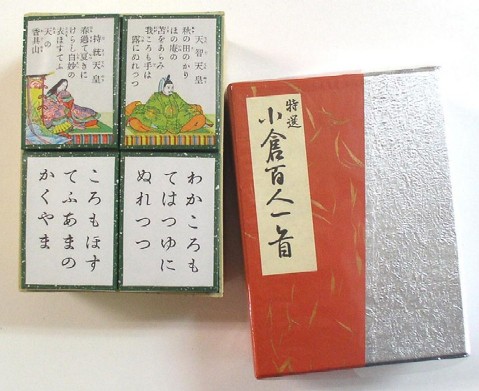 持統天皇
春過ぎて夏きに
けらし白妙の
衣ほすてふ
天の
香具山
天智天皇
秋の田のかり
ほの庵の
苫をあらみ
我ころも手は
露にぬれつつ
ころもほす
てふあまの
かくやま
わかころも
てはつゆに
ぬれつつ
特選
小倉百人一首